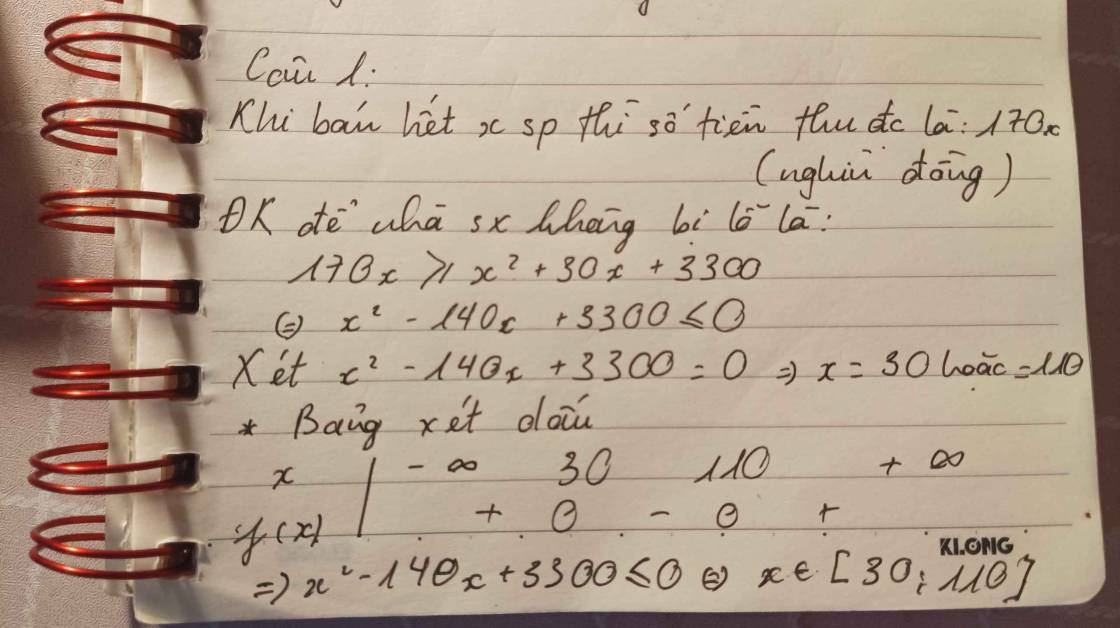 Câu 1:
Khi bán hết x sp thì số tiền thu đc là: 170x
(nghìn đồng)
ĐK để nhà sx không bị lỗ là:
170x ⩾ x² + 30x + 3300
⇔ x² - 140x + 3300 ≤ 0
Xét x² - 140x + 3300 = 0 ⇒ x = 30 hoặc = 110
* Bảng xét dấu
x | - ∞ 30 110 + ∞
f(x) | + 0 - 0 +
KLONG
⇒ x² - 140x + 3300 ≤ 0 ⇔ x ∈ [30; 110]